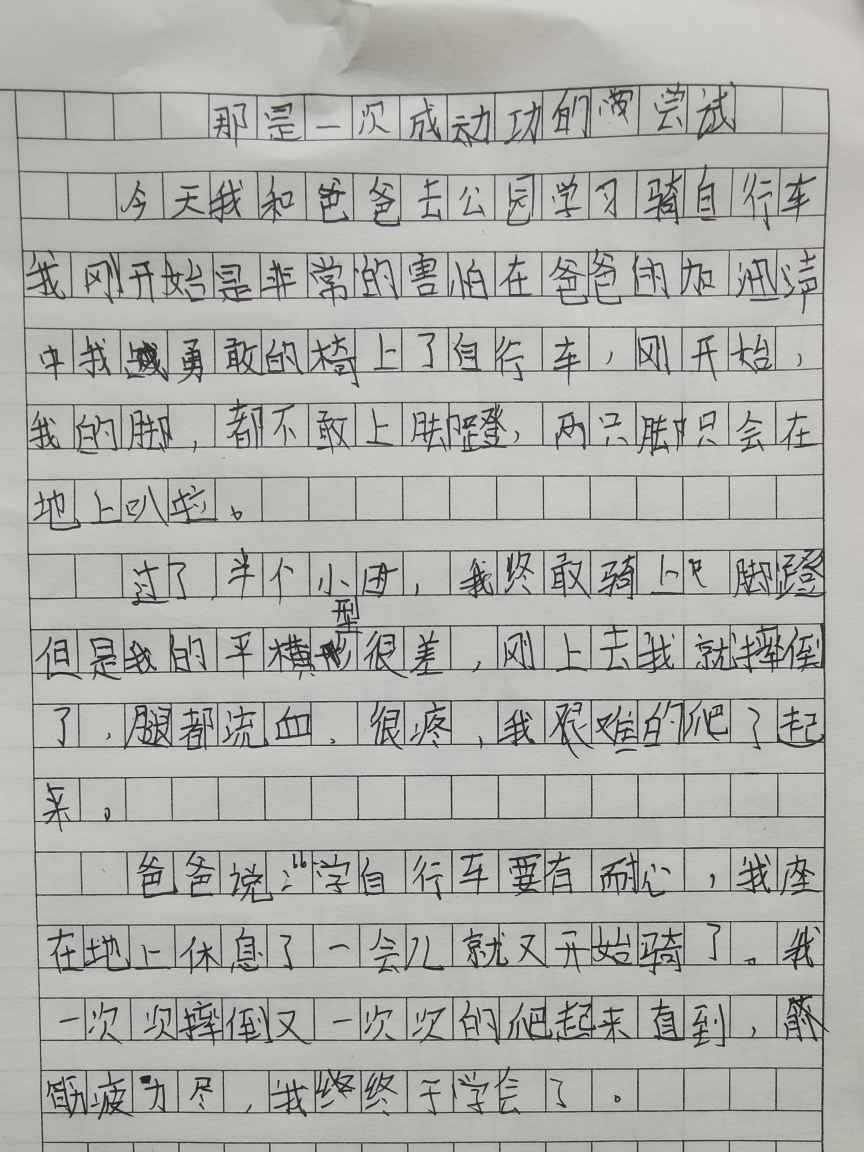 那是一次成动功的尝试
今天我和爸爸去公园学习骑自行车
我刚开始是非常的害怕在爸爸的加迅声
中我勇敢的椅上了自行车，刚开始，
我的脚，都不敢上脚蹬，两只脚只会在
地上叭啦。
过了半个小时，我终敢骑上脚蹬
型
但是我的平横很差，刚上去我就摔倒
了，腿都流血，很疼，我艰难的爬了起
来。
爸爸说：“学自行车要有耐心，我座
在地上休息了一会儿就又开始骑了。我
一次次摔倒又一次次的爬起来直到，
筋疲力尽，我终终于学会了。